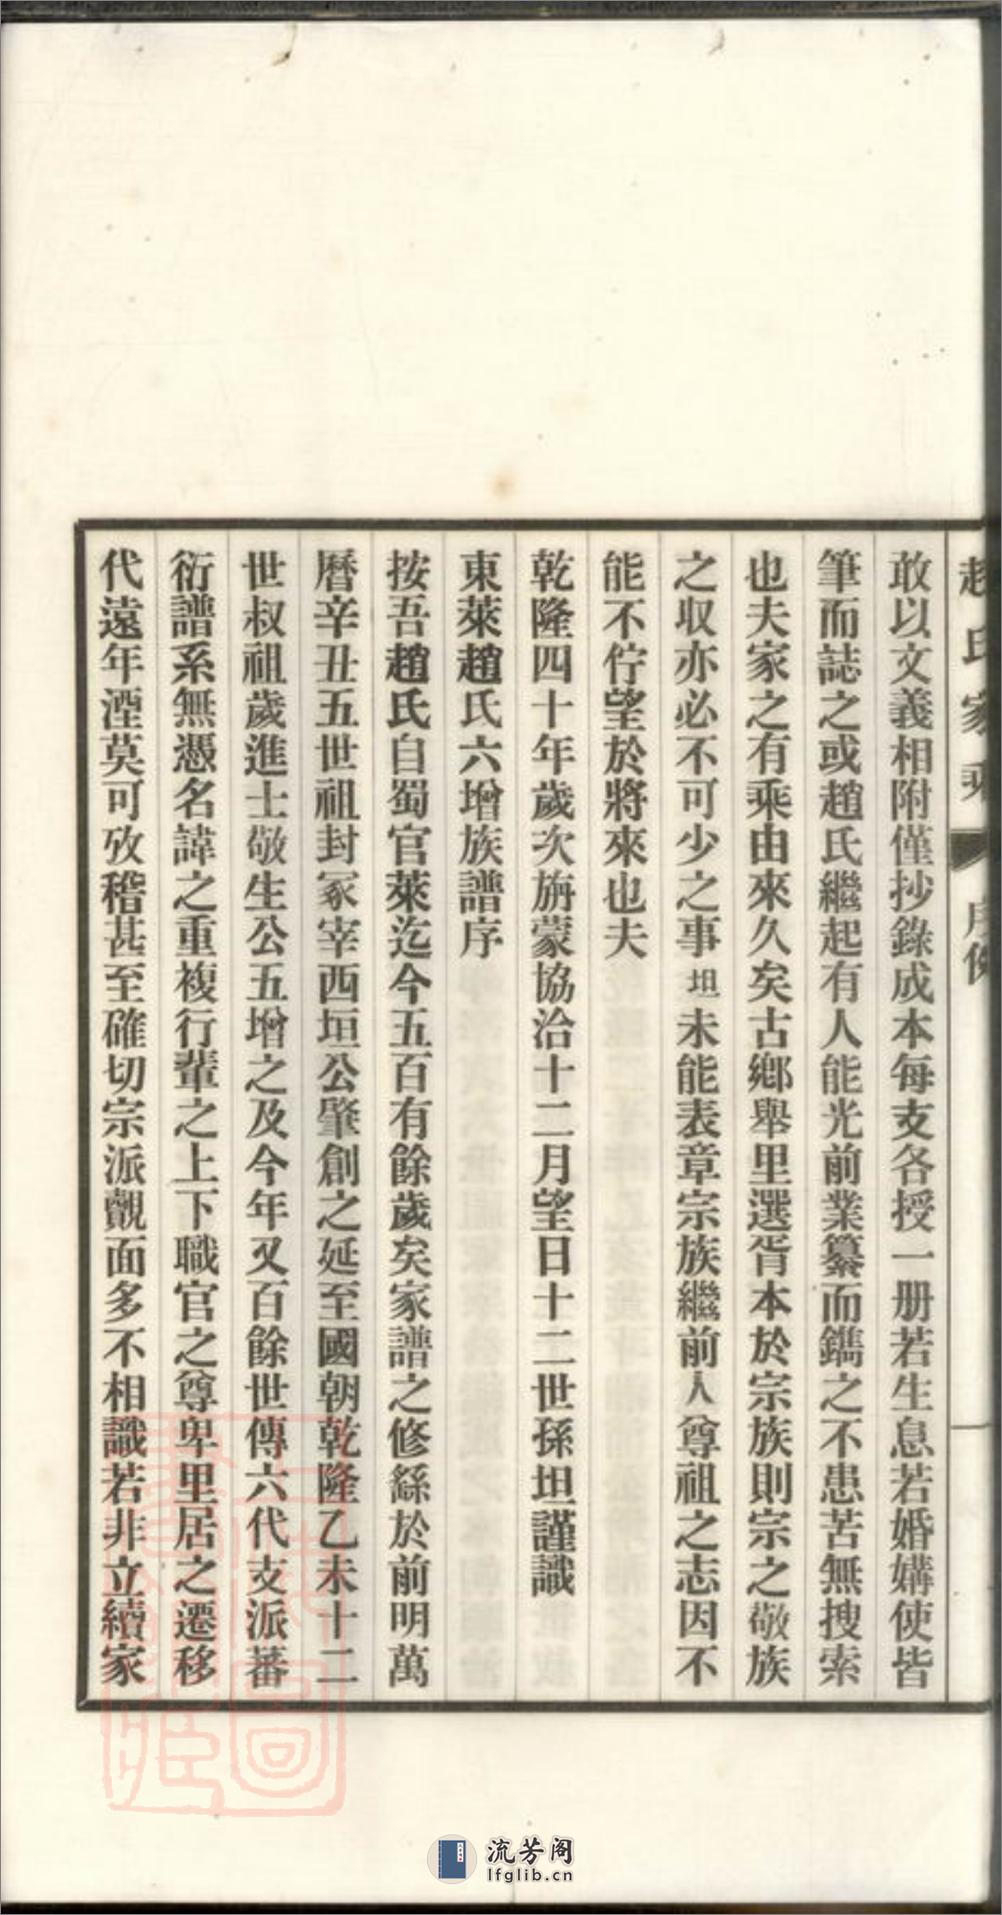 趙氏家乘 序例
敢以文義相附僅抄錄成本每支各授一册若生息若婚媾使皆
筆而誌之或趙氏繼起有人能光前業纂而鐫之不患苦無搜索
也夫家之有乘由來久矣古鄉舉里選胥本於宗族則宗之敬族
之收亦必不可少之事坦未能表章宗族繼前人尊祖之志因不
能不佇望於將來也夫
乾隆四十年歲次旃蒙協洽十二月望日十二世孫坦謹識
東萊趙氏六增族譜序
按吾趙氏自蜀官萊迄今五百有餘歲矣家譜之修繇於前明萬
曆辛丑五世祖封冢宰西垣公肇創之延至國朝乾隆乙未十二
世叔祖歲進士敬生公五增之及今年又百餘世傳六代支派蕃
衍譜系無憑名諱之重複行輩之上下職官之尊卑里居之遷移
代遠年湮莫可攷稽甚至確切宗派覿面多不相識若非立續家
流芳阁
lfglib.cn